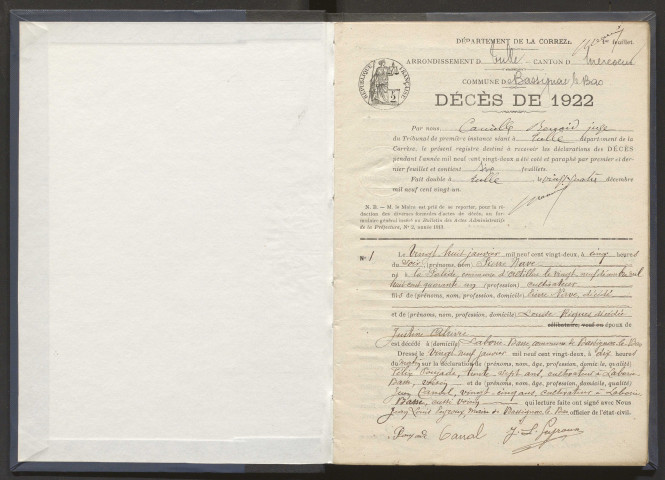 DÉPARTEMENT DE LA CORRÈZE
feuillet
ARRONDISSEMENT DE Tulle CANTON DE Mercoeur
COMMUNE DE Bassignac le Bas
RÉPUBLIQUE FRANÇAISE
DÉCÈS DE 1922
Par nous Camille juge
du Tribunal de première instance séant à Tulle département de la
Corrèze, le présent registre destiné à recevoir les déclarations des DÉCÈS
pendant l'année mil neuf cent vingt-deux a été coté et paraphé par premier et der-
nier feuillet et contient feuillets.
Fait double à Tulle le vingt quatre décembre
mil neuf cent vingt-un.
N. B. — M. le Maire est prié de se reporter, pour la ré-
daction des diverses formules d'actes de décès, au for-
mulaire général inséré au Bulletin des Actes Administratifs
de la Préfecture, N° 2, année 1913.
N° 1
Le Vingt huit janvier mil neuf cent vingt-deux, à cinq heures
du soir (prénoms, nom) Pierre
né à commune d'Astillac le vingt mil
huit cent quarante (profession) cultivateur
fils de (prénoms, nom, profession, domicile) Pierre décédé
et de (prénoms, nom, profession, domicile) décédée
célibataire, veuf ou époux de
Justine
est décédé à (domicile) Laborie Basse, commune de Bassignac le Bas
Dressé le vingt neuf janvier mil neuf cent vingt-deux, à dix heures
du matin, sur la déclaration de (prénoms, nom, âge, profession, domicile, qualité)
Félix trente sept ans, cultivateur à Laborie
Basse, voisin et de (prénoms, nom, âge, profession, domicile, qualité)
Jean Canal, vingt cinq ans, cultivateur à Laborie
Basse, aussi voisin qui lecture faite ont signé avec Nous
Jean Louis maire de Bassignac le Bas officier de l'état-civil.
Canal J. L.